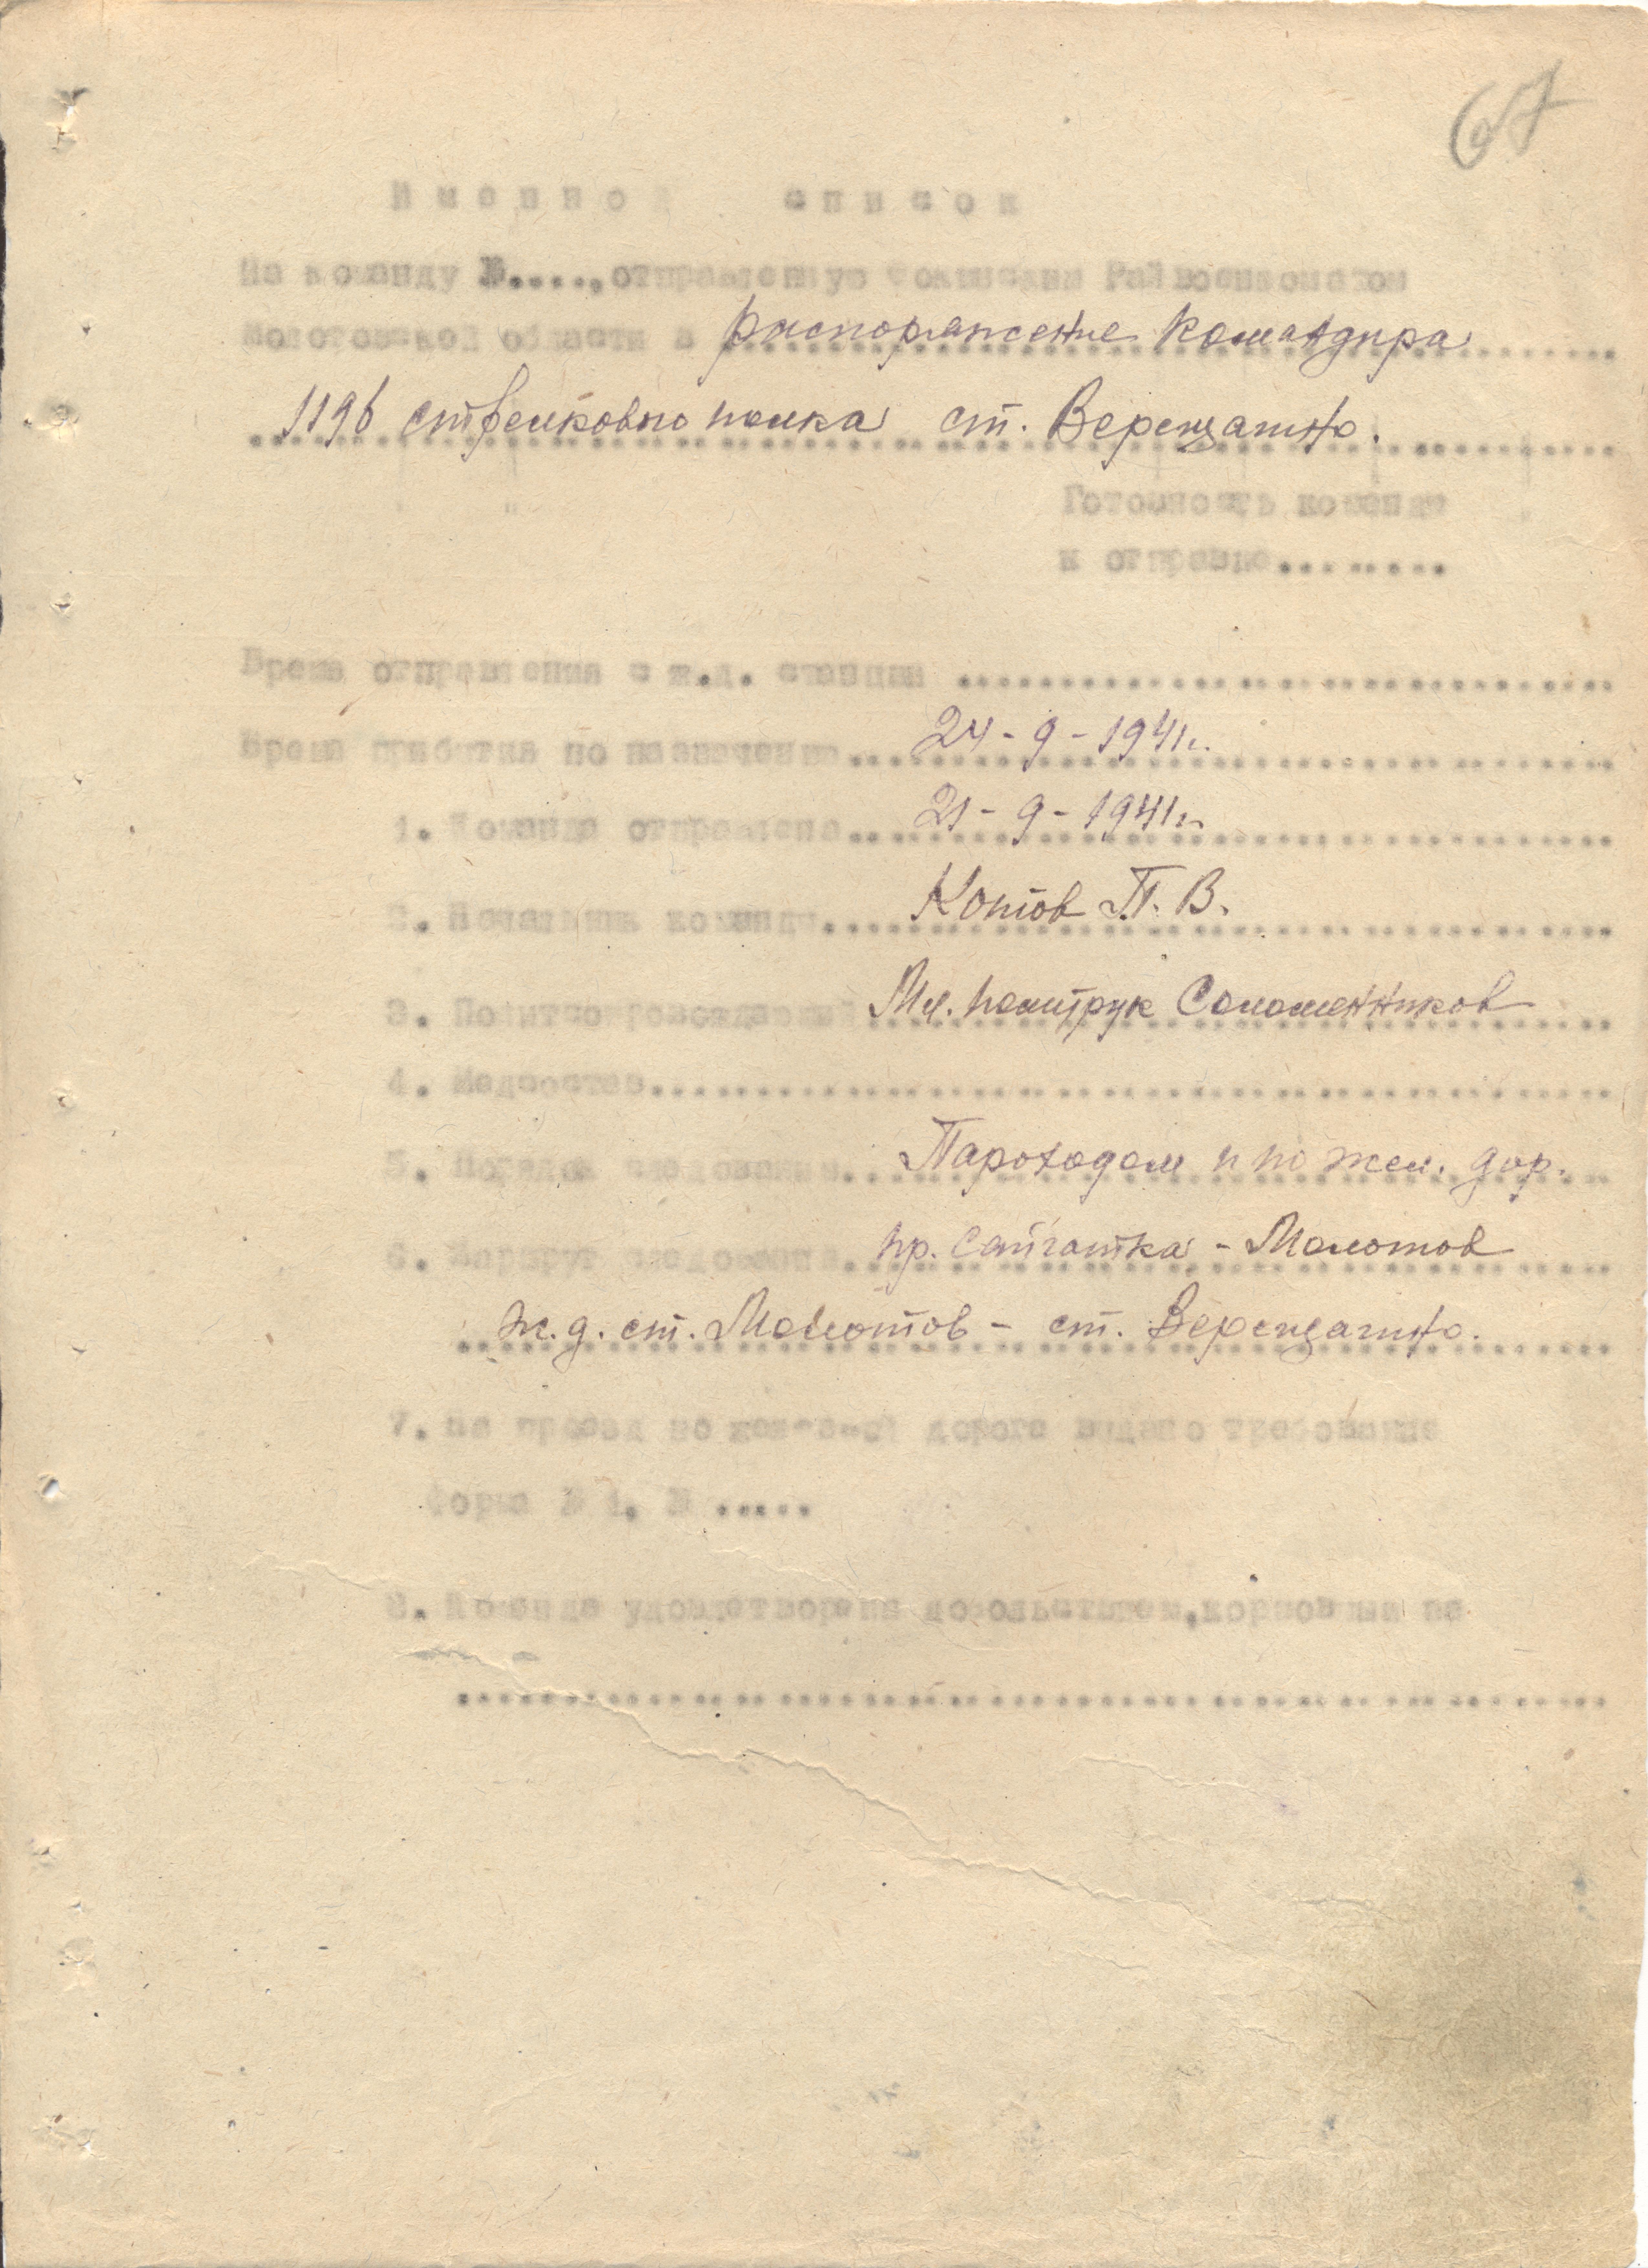 67
Именной список
На команду №...., отправленную Фокинским Райвоенкоматом
Молотовской области в распоряжение Командира
1196 стрелкового полка ст. Верещагино.
Готовность команды
к отправке........
Время отправления с ж.д. станции ................................
Время прибытия по назначению... 24-9-1941г.
1. Команда отправлена... 21-9-1941г.
2. Начальник команды... Котов П. В.
3. Мл. политрук Соломенников
4. Медсостав................................
5. Порядок следования... Пароходом и по жел. дор.
6. Маршрут следования... пр. Сайгатка - Молотов
ж.д. ст. Молотов - ст. Верещагино.
7. На проезд по железной дороге выдано требование
форма № 1, № .....
8. Команда удовлетворена довольствием, кормовыми на
................................